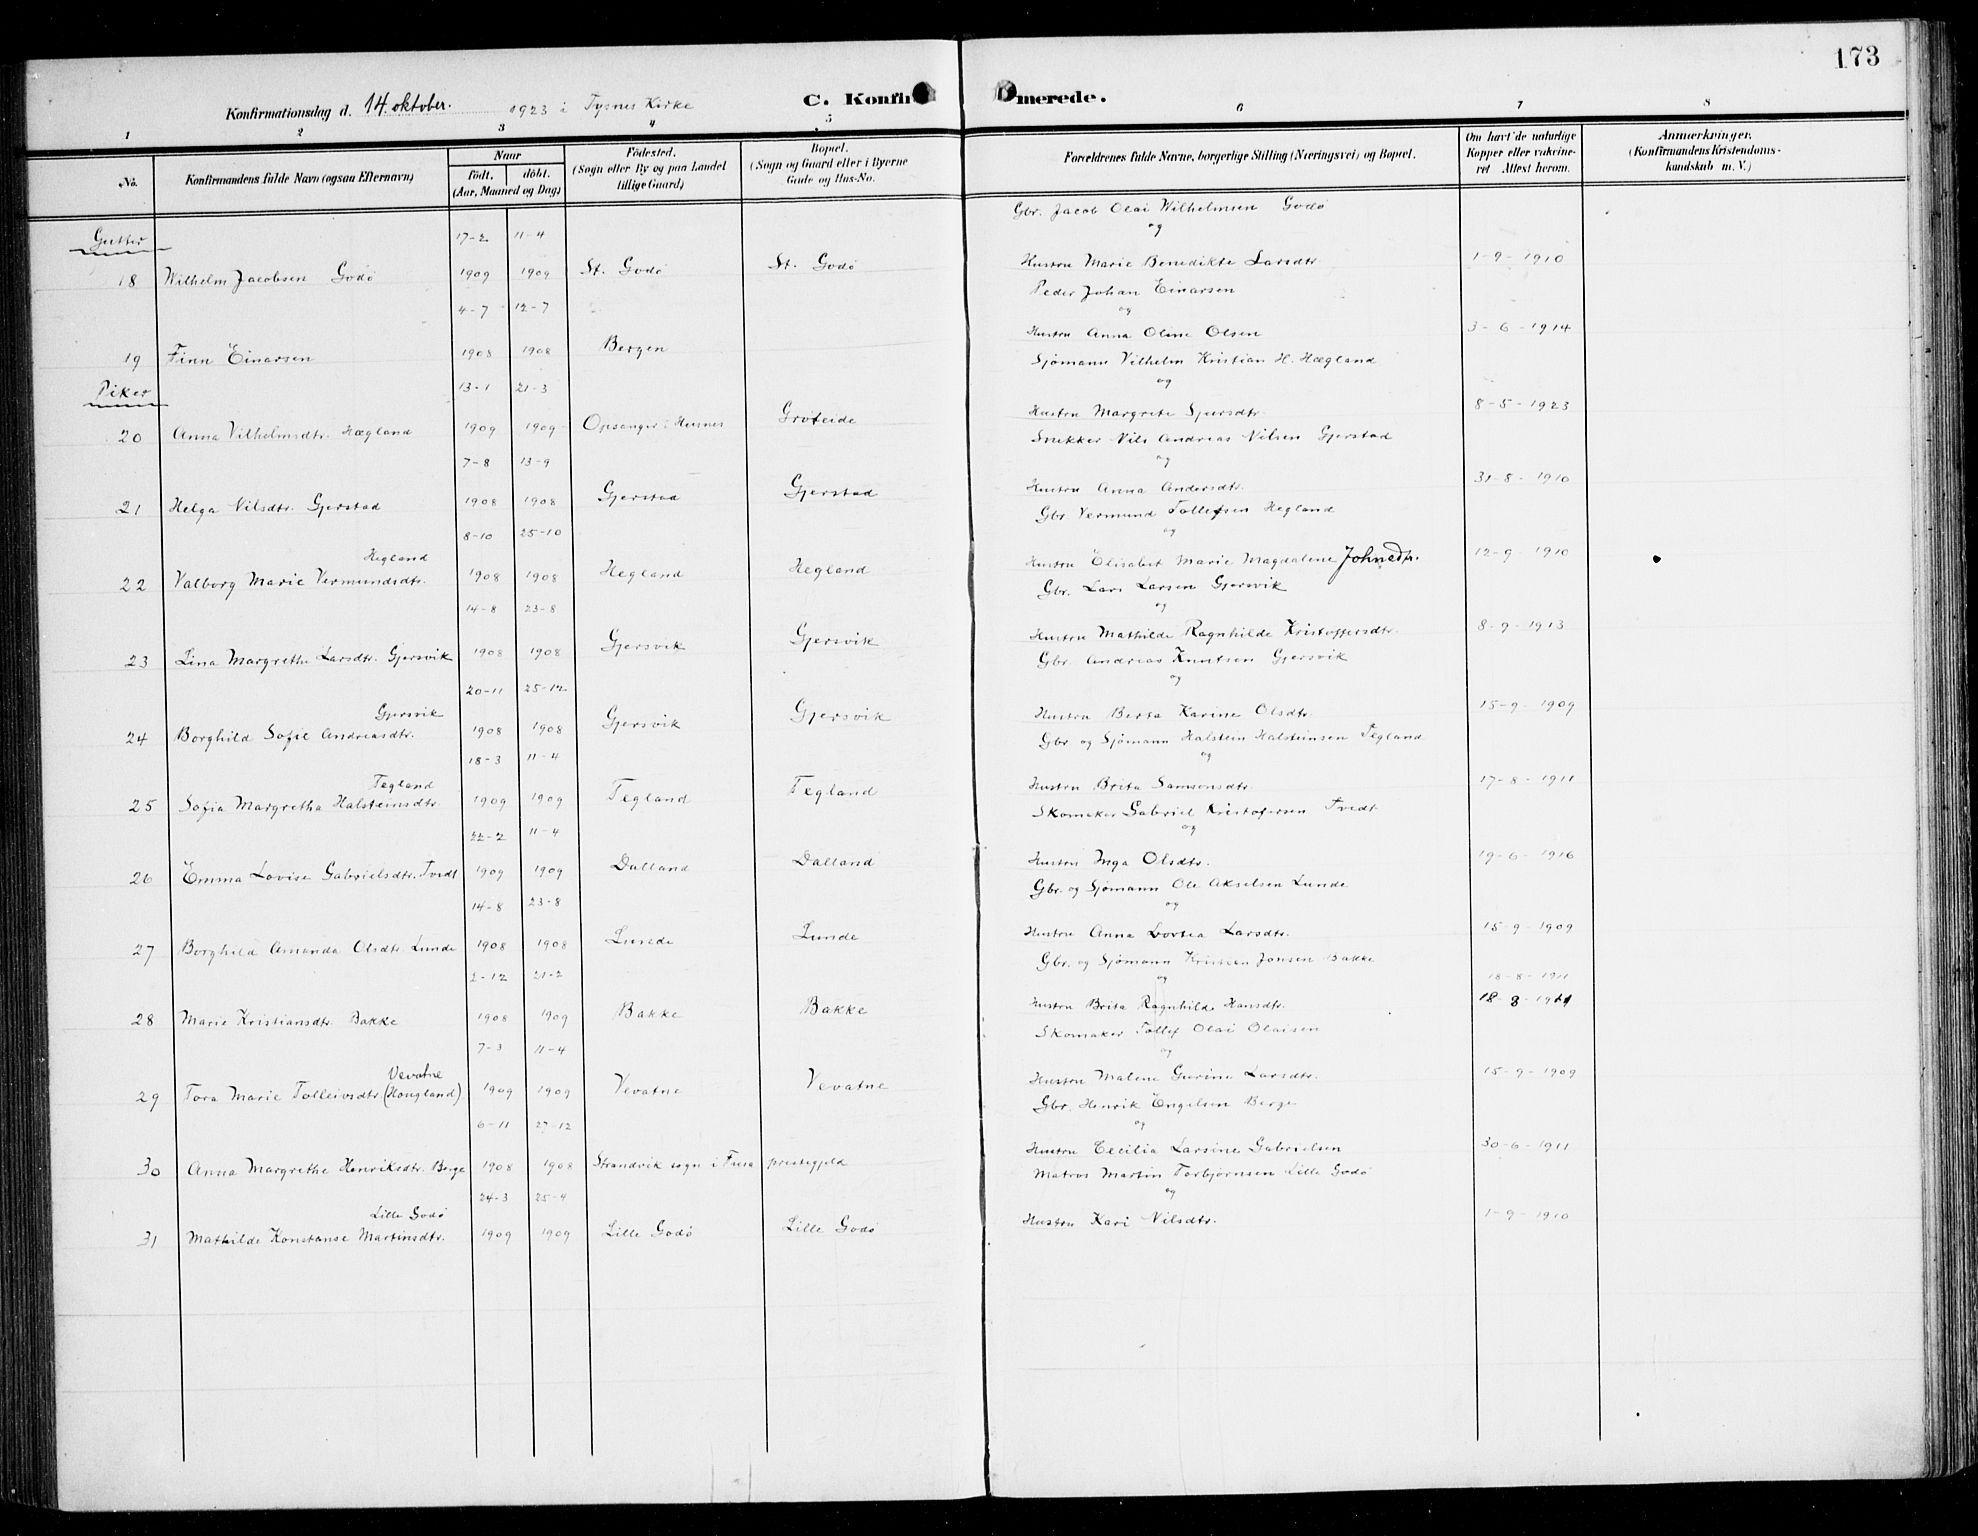 173
Konfirmationsdag d. 14. oktober. 1923 i Tysnes Kirke
C. Konfirmerede.
1 2 3 4 5 6 7 8
No. Konfirmandens fulde Navn (ogsaa Efternavn) Naar født, døbt. (Aar, Maaned og Dag) Fødested. (Sogn eller By og paa Landet tillige Gaard) Bopæl. (Sogn og Gaard eller i Byerne Gade og Hus-No. Forældrenes fulde Navne, borgerlige Stilling (Næringsvei) og Bopæl. Om havt de naturlige Kopper eller vakcineret. Attest herom. Anmærkninger. (Konfirmandens Kristendomskundskab m. V.)
Gutter
17-2 11-4 Gbr. Jacob Olai Wilhelmsen Godø
og
18 Wilhelm Jacobsen Godø 1909 1909 St. Godø St. Godø Hustru Marie Benedikte Larsdtr. 1-9-1910
4-7 12-7 Peder Johan Einarsen
og
19 Finn Einarsen 1908 1908 Bergen Hustru Anna Oline Olsen 3-6-1914
Piker
13-1 21-3 Sjømann Vilhelm Kristian H. Hægland
og
20 Anna Vilhelmsdtr. Hægland 1909 1909 Opsanger i Husnes Groteide Hustru Margrete Sjursdtr. 8-5-1923
7-8 13-9 Snekker Nils Andreas Nilsen Gjerstad
og
21 Helga Nilsdtr. Gjerstad 1908 1908 Gjerstad Gjerstad Hustru Anna Andersdtr. 31-8-1910
8-10 25-10 Gbr. Vermund Tollefsen Hegland
og
Hegland
22 Valborg Marie Vermundsdtr. 1908 1908 Hegland Hegland Hustru Elisabet Marie Magdalene Johnsdtr. 12-9-1910
14-8 23-8 Gbr. Lars Larsen Gjersvik
og
23 Lina Margrethe Larsdtr. Gjersvik 1908 1908 Gjersvik Gjersvik Hustru Mathilde Ragnhilde Kristoffersdtr. 8-9-1913
20-11 25-12 Gbr. Andreas Knutsen Gjersvik
og
Gjersvik
24 Borghild Sofie Andreasdtr. 1908 1908 Gjersvik Gjersvik Hustru Berta Karine Olsdtr. 15-9-1909
18-3 11-4 Gbr og Sjømann Halstein Halsteinsen Tegland
og
Tegland
25 Sofia Margretha Halsteinsdtr. 1909 1909 Tegland Tegland Hustru Brita Samsonsdtr. 17-8-1911
22-2 11-4 Skomaker Gabriel Kristofersen Tvedt
og
26 Emma Lovise Gabrielsdtr. Tvedt 1909 1909 Dalland Dalland Hustru Inga Olsdtr. 19-6-1916
14-8 23-8 Gbr. og Sjømann Ole Akselsen Lunde
og
27 Borghild Amanda Olsdtr. Lunde 1908 1908 Lunde Lunde Hustru Anna Dortea Larsdtr. 15-9-1909
2-12 21-2 Gbr. og Sjømann Kristian Jonsen Bakke
og 18-8-1911
28 Marie Kristiansdtr. Bakke 1908 1909 Bakke Bakke Hustru Brita Ragnhilde Hansdtr. 18-8-1911
7-3 11-4 Skomaker Tollef Olai Olaisen
og
Vevatne
29 Tora Marie Tolleivsdtr. (Hougland) 1909 1909 Vevatne Vevatne Hustru Malene Gurine Larsdtr. 15-9-1909
6-11 27-12 Gbr. Henrik Engelsen Berge
og
30 Anna Margrethe Henriksdtr. Berge 1908 1908 Strandvik sogn i Fusa prestegjeld Hustru Cecilia Larsine Gabrielsen 30-6-1911
24-3 25-4 Matros Martin Torbjørnsen Lille Godø
og
Lille Godø
31 Mathilde Konstanse Martinsdtr. 1909 1909 Lille Godø Lille Godø Hustru Kari Nilsdtr. 1-9-1910